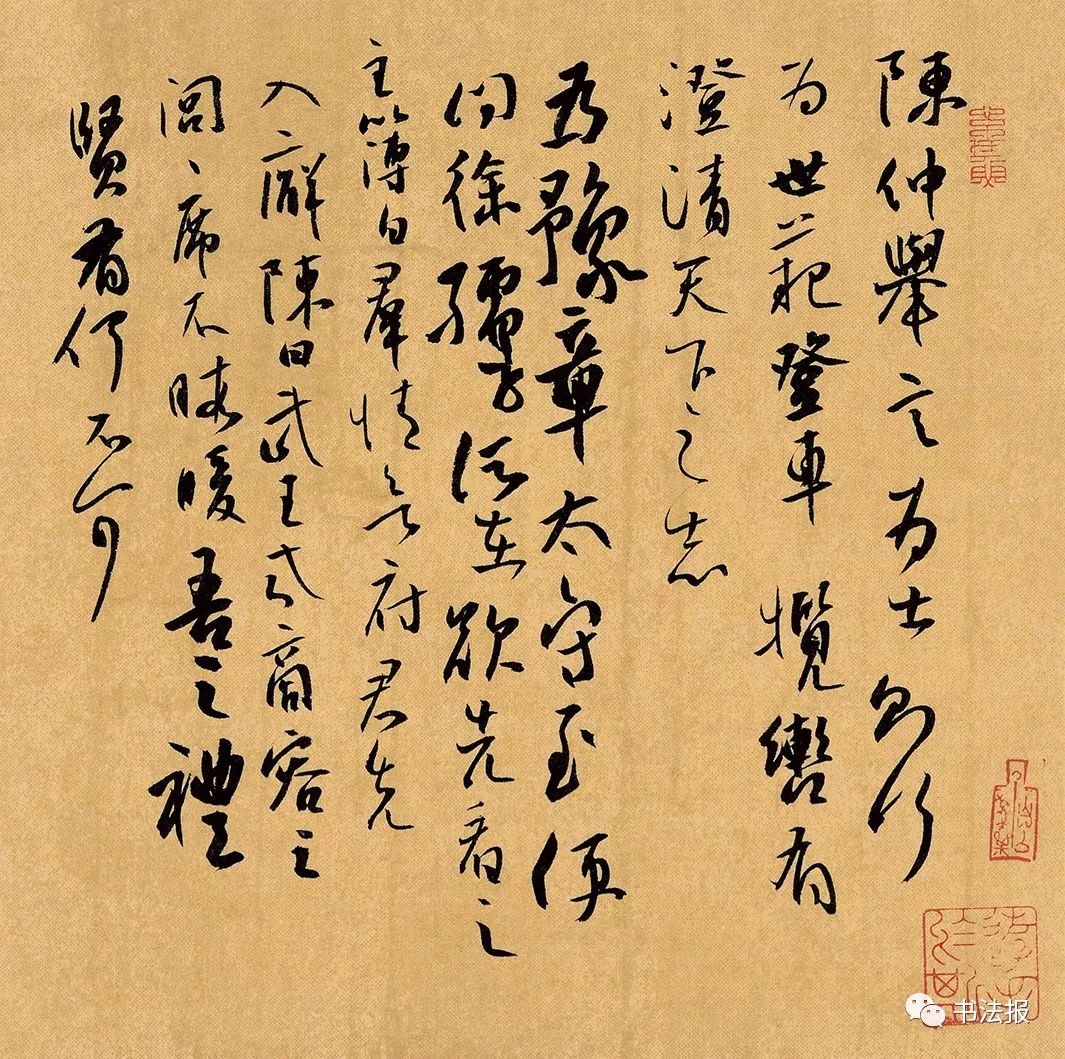 陳仲舉言为士则行
为世範登車攬轡有
澄清天下之志
为豫章太守至便
问徐孺子所在欲先看之
主簿白羣情欲府君先
入廨陳曰武王式商容之
閭席不暇暖吾之禮
賢有何不可
书法报